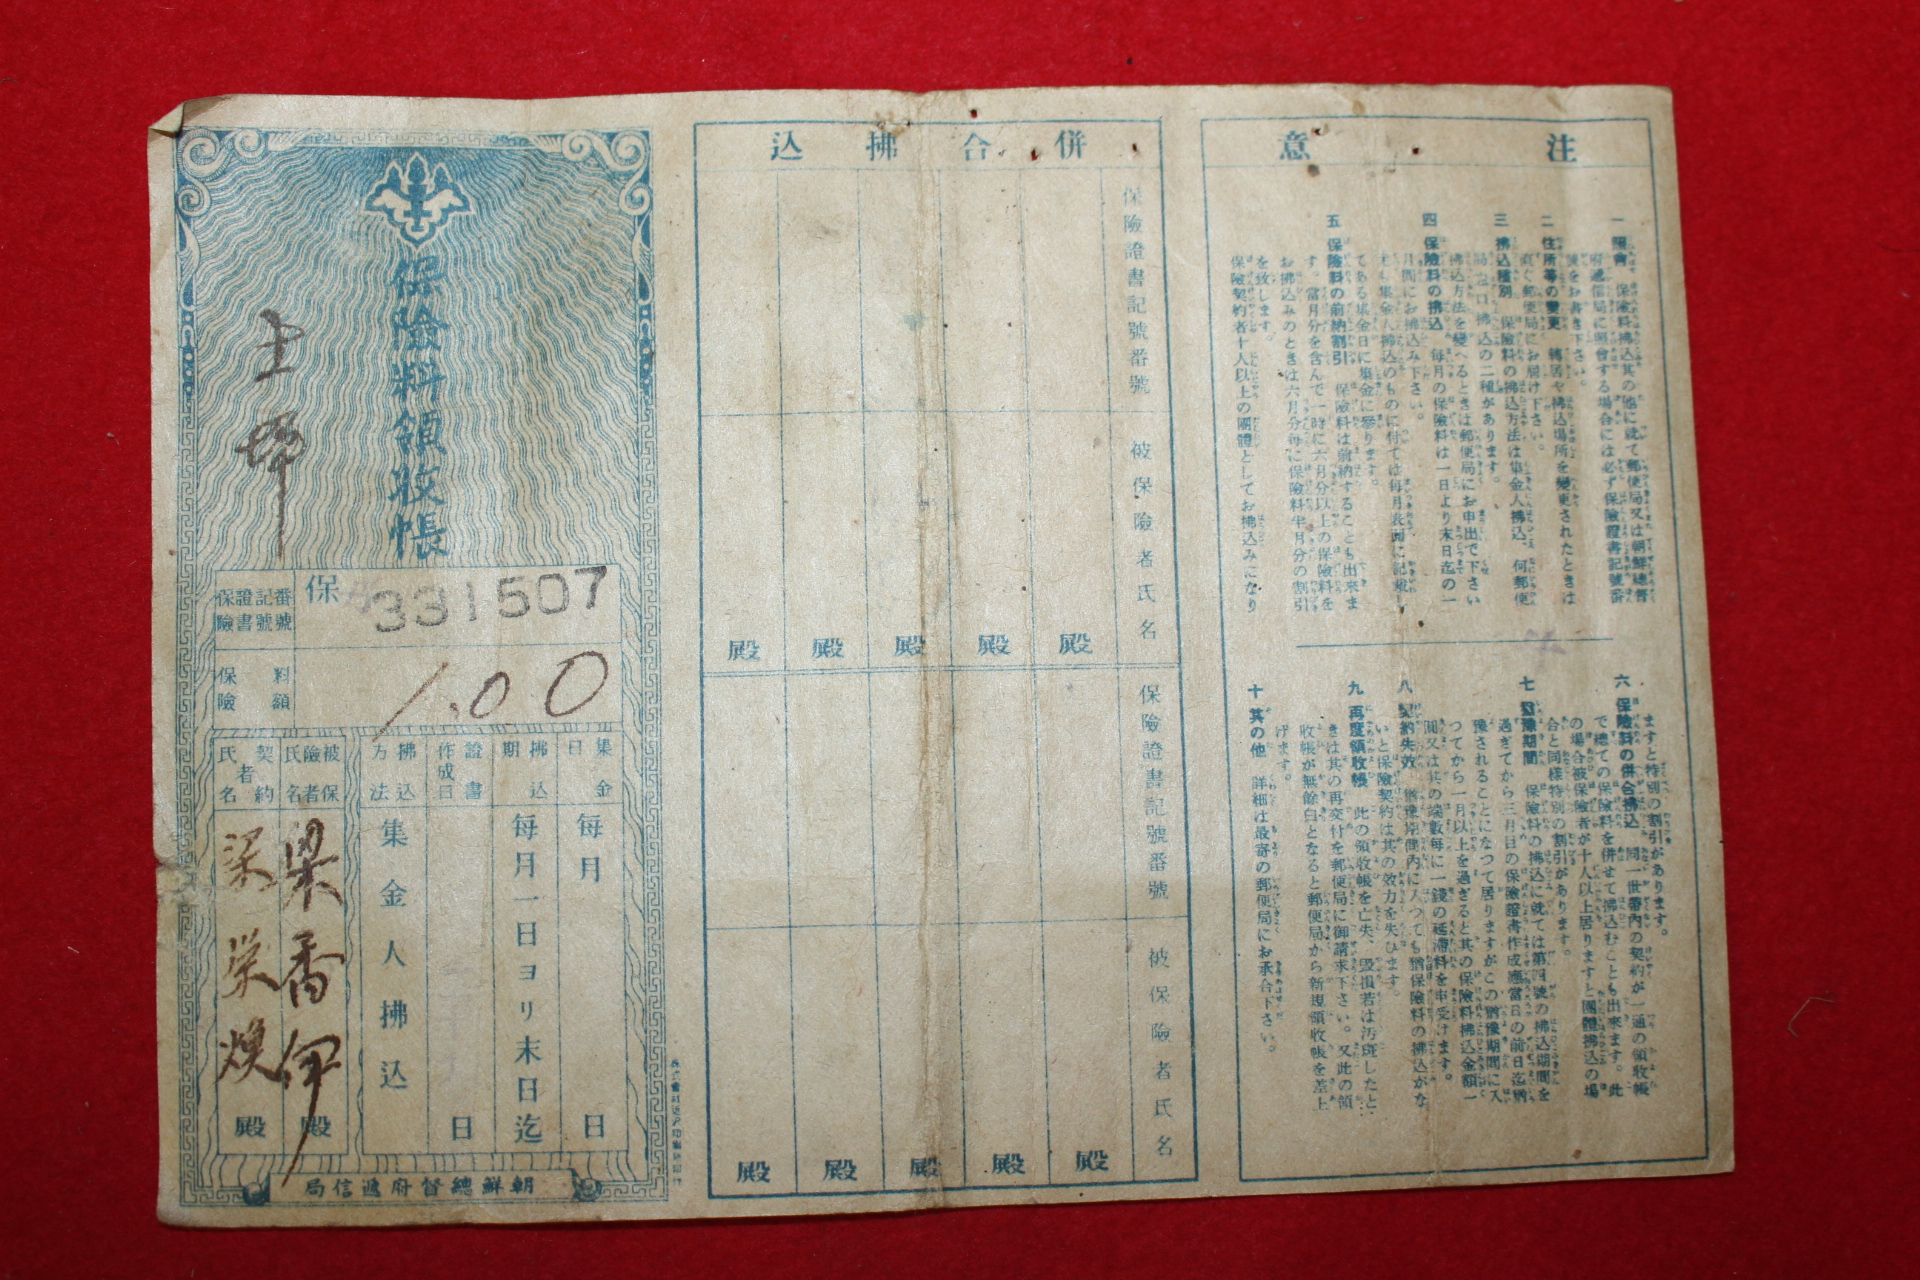 注意
一 照會 保險料拂込其の他に就て郵便局又は朝鮮總督
府遞信局に照會する場合には必ず保險證書記號番
號をお書き下さい。
二 住所等の變更 轉居や拂込場所を變更されたときは
直ぐ郵便局にお届け下さい。
三 拂込種別 保險料の拂込方法は集金人拂込、何郵便
局窓口拂込の二種があります。
拂込方法を變へるときは郵便局にお申出で下さい
四 保險料の拂込 毎月の保險料は一日より末日迄の一
月間にお拂込み下さい。
尤も集金人拂込のものに付ては毎月表面に記載し
てある集金日に集金に參ります。
五 保險料の前納割引 保險料は前納することも出來ま
す。當月分を含んで一時に六月分以上の保險料を
お拂込みのときは六月分毎に保險料半月分の割引
を致します。
保險契約者十人以上の團體としてお拂込みになり
ますと特別の割引があります。
六 保險料の併合拂込 同一世帶內の契約が一通の領收帳
で總ての保險料を併せて拂込むことも出來ます。此
の場合被保險者が十人以上居りますと團體拂込の場
合と同樣特別の割引があります。
七 猶豫期間 保險料の拂込に就ては第四號の拂込期間を
過ぎてから三月目の保險證書作成應當日の前日迄猶
豫されることになつて居りますがこの猶豫期間に入
つてから一月以上を過ぎると其の保險料拂込金額一
圓又は其の端數每に一錢の延滯料を申受けます。
八 契約失效 猶豫期間內に入つても猶保險料の拂込がな
いと保險契約は其の效力を失ひます。
九 再度領收帳 此の領收帳を亡失、毀損若は汚斑したと
きは其の再交付を郵便局に御請求下さい。又此の領
收帳が無餘白となると郵便局から新規領收帳を差上
げます。
十 其の他 詳細は最寄の郵便局にお承合下さい。
併合拂込
保險證書記號番號
被保險者氏名
殿 殿 殿 殿 殿
保險證書記號番號
被保險者氏名
殿 殿 殿 殿 殿
保險料領收帳
保險證書記號番號
保 331507
保險料額
1.00
集金日
每月 日
拂込期
每月一日ヨリ末日迄
證書作成日
日
拂込方法
集金人拂込
被保險者氏名
梁香伊 殿
契約者氏名
梁榮煥 殿
朝鮮總督府遞信局